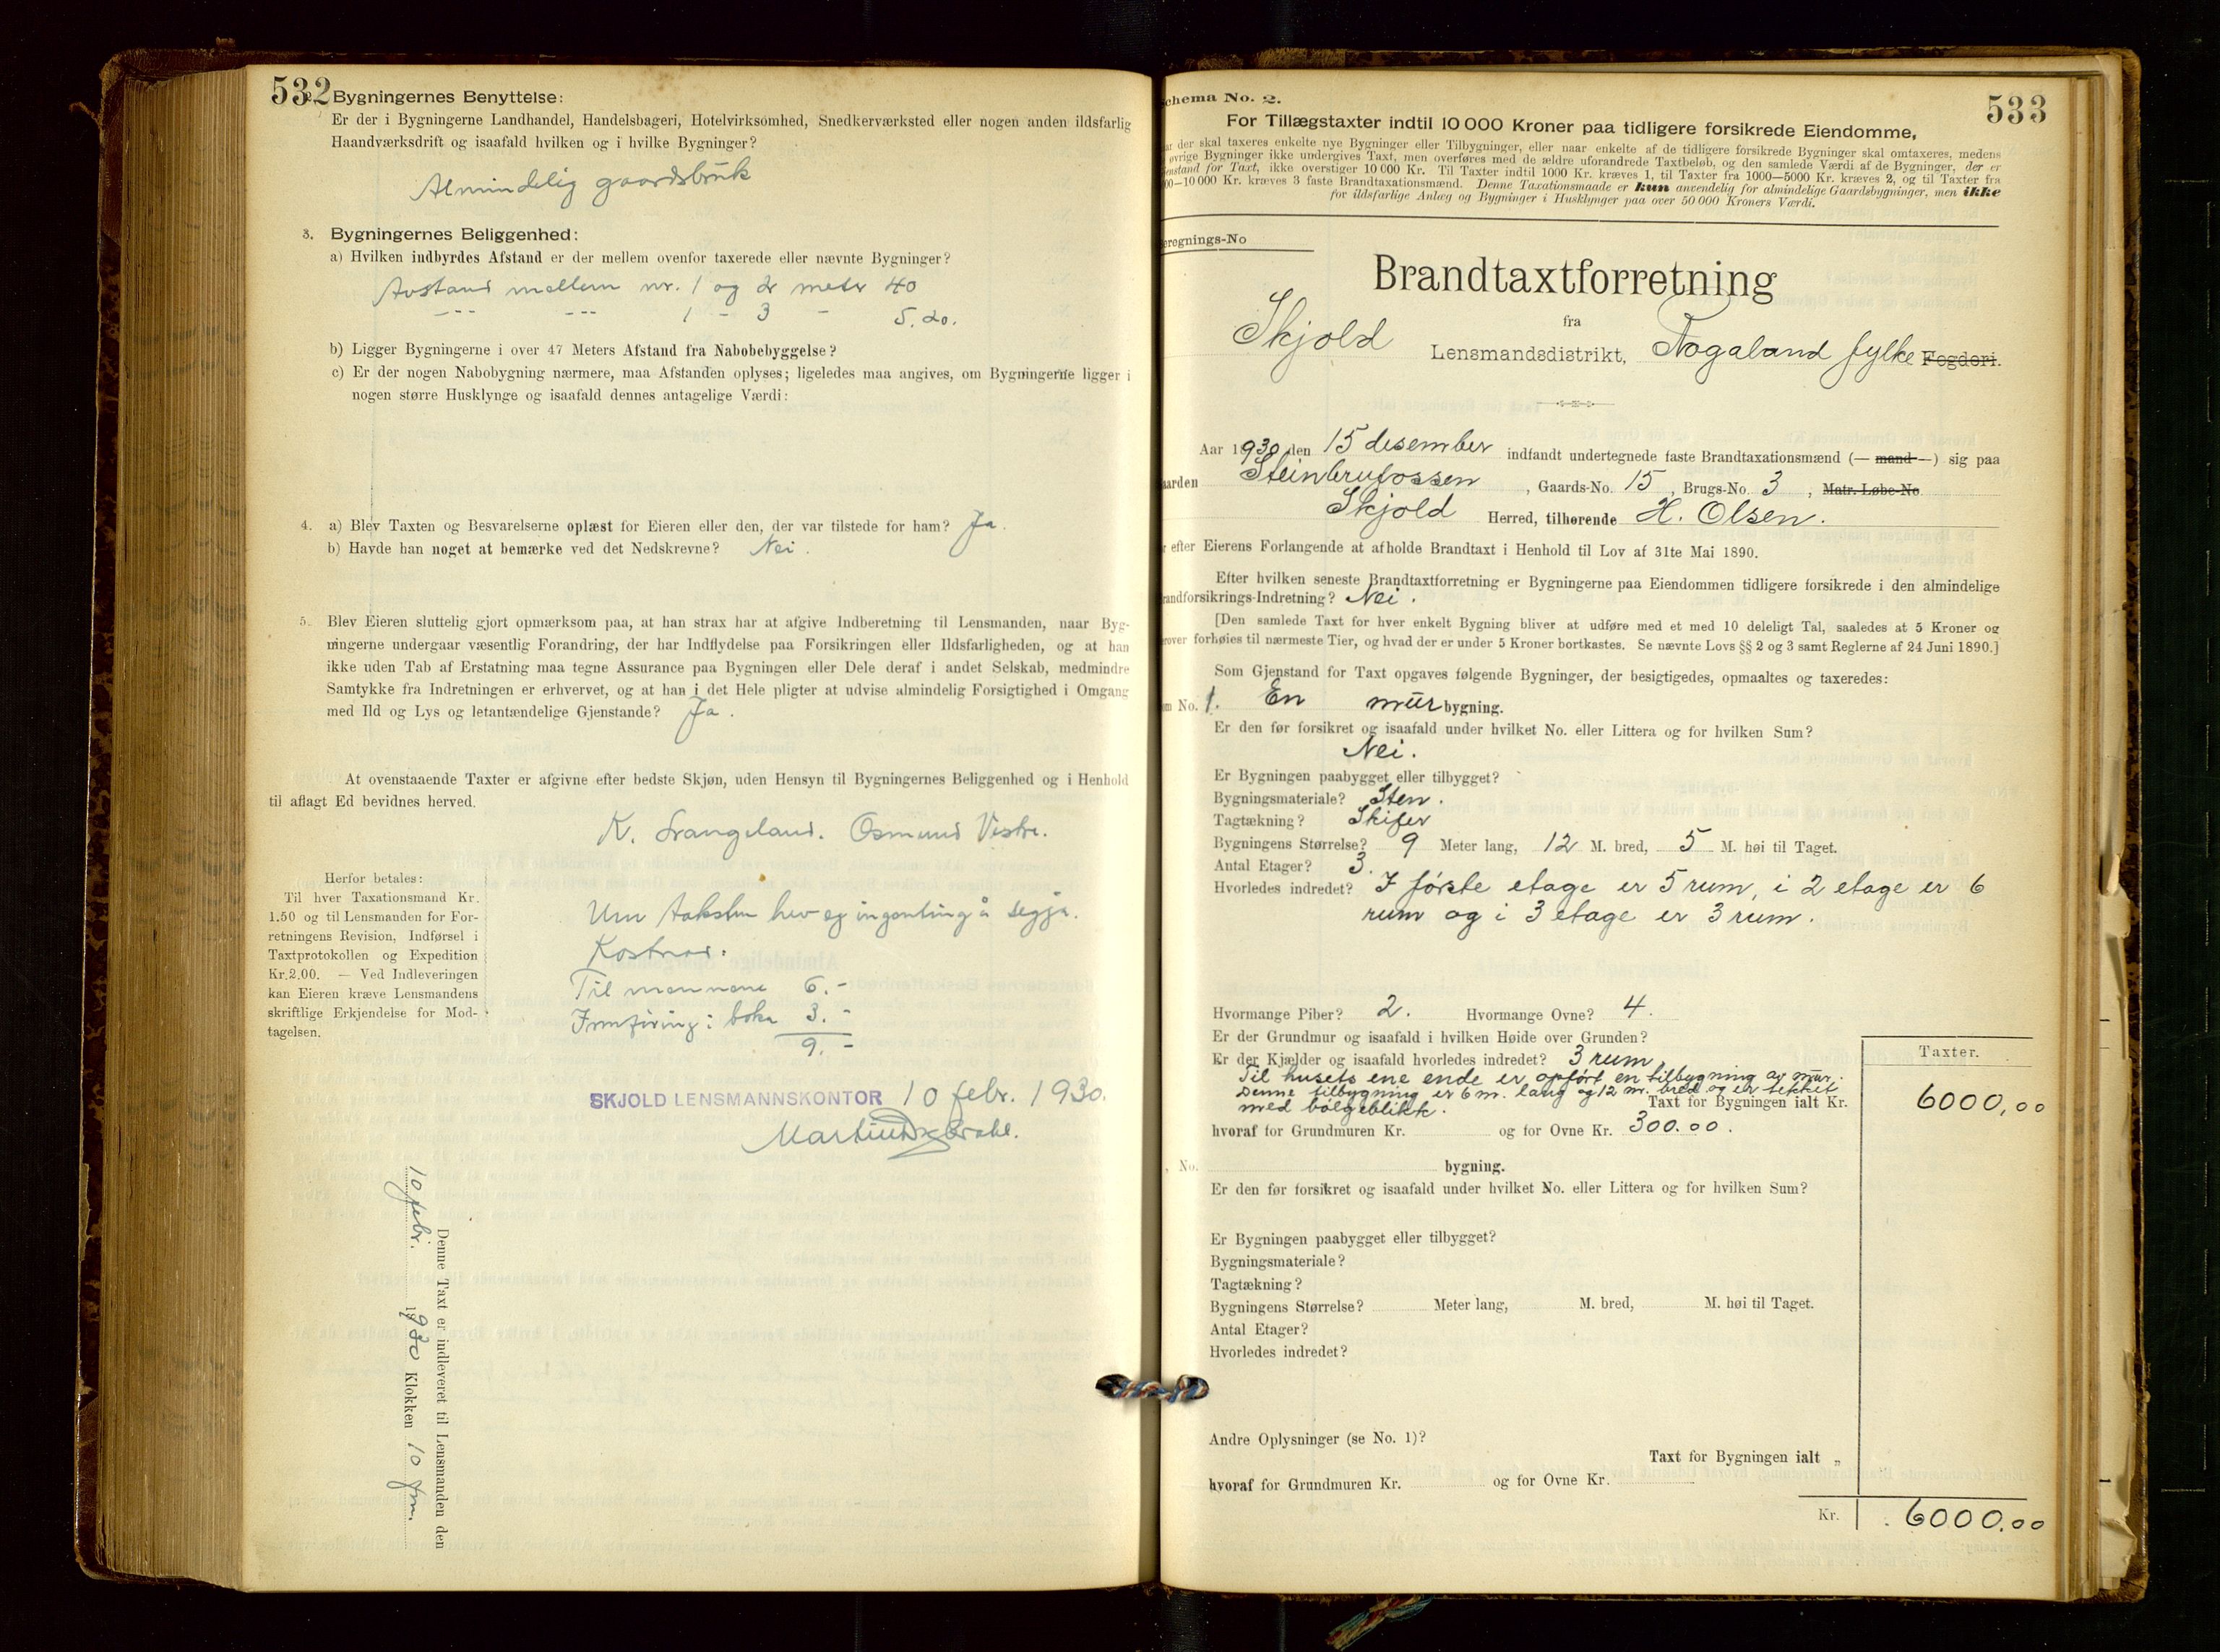 532
2. Bygningernes Benyttelse:
Er der i Bygningerne Landhandel, Handelsbageri, Hotelvirksomhed, Snedkerværksted eller nogen anden ildsfarlig
Haandværksdrift og isaafald hvilken og i hvilke Bygninger?
Almindelig gaardsbruk
3. Bygningernes Beliggenhed:
a) Hvilken indbyrdes Afstand er der mellem ovenfor taxerede eller nævnte Bygninger?
Avstand mellem nr. 1 og 2 meter 40
-"- -"- 1 - 3 - 5.20.
b) Ligger Bygningerne i over 47 Meters Afstand fra Nabobebyggelse?
c) Er der nogen Nabobygning nærmere, maa Afstanden oplyses; ligeledes maa angives, om Bygningerne ligger i
nogen større Husklynge og isaafald dennes antagelige Værdi:
4. a) Blev Taxten og Besvarelserne oplæst for Eieren eller den, der var tilstede for ham? Ja.
b) Havde han noget at bemærke ved det Nedskrevne? Nei.
5. Blev Eieren sluttelig gjort opmærksom paa, at han strax har at afgive Indberetning til Lensmanden, naar Byg-
ningerne undergaar væsentlig Forandring, der har Indflydelse paa Forsikringen eller Ildsfarligheden, og at han
ikke uden Tab af Erstatning maa tegne Assurance paa Bygningen eller Dele deraf i andet Selskab, medmindre
Samtykke fra Indretningen er erhvervet, og at han i det Hele pligter at udvise almindelig Forsigtighed i Omgang
med Ild og Lys og letantændelige Gjenstande? Ja.
At ovenstaaende Taxter er afgivne efter bedste Skjøn, uden Hensyn til Bygningernes Beliggenhed og i Henhold
til aflagt Ed bevidnes herved.
K. Frangeland. Osmund Vestre.
Herfor betales:
Til hver Taxationsmand Kr.
1.50 og til Lensmanden for For-
retningens Revision, Indførsel i
Taxtprotokollen og Expedition
Kr. 2.00. — Ved Indleveringen
kan Eieren kræve Lensmandens
skriftlige Erkjendelse for Mod-
tagelsen.
Um taksten hev eg ingenting å segja.
Kostnad:
Til mennene 6.-
Innføring i boka 3.-
9.-
SKJOLD LENSMANNSKONTOR 10 febr. 1930.
Denne Taxt er indleveret til Lensmanden den
10 febr. 1930 Klokken 10 fm.
533
Schema No. 2.
For Tillægstaxter indtil 10 000 Kroner paa tidligere forsikrede Eiendomme,
der skal taxeres enkelte nye Bygninger eller Tilbygninger, eller naar enkelte af de tidligere forsikrede Bygninger skal omtaxeres, medens
øvrige Bygninger ikke undergives Taxt, men overføres med de ældre uforandrede Taxtbeløb, og den samlede Værdi af de Bygninger, der er
Gjenstand for Taxt, ikke overstiger 10 000 Kr. Til Taxter indtil 1000 Kr. kræves 1, til Taxter fra 1000—5000 Kr. kræves 2, og til Taxter fra
5000—10 000 Kr. kræves 3 faste Brandtaxationsmænd. Denne Taxationsmaade er kun anvendelig for almindelige Gaardsbygninger, men ikke
for ildsfarlige Anlæg og Bygninger i Husklynger paa over 50 000 Kroners Værdi.
Beregnings-No
Brandtaxtforretning
fra
Skjold Lensmandsdistrikt, Rogaland fylke Fogderi.
Aar 1930 den 15 desember indfandt undertegnede faste Brandtaxationsmænd (— mand —) sig paa
Gaarden Steinbrufossen, Gaards-No. 15, Brugs-No. 3, Matr.-Løbe-No
Skjold Herred, tilhørende H. Olsen.
for efter Eierens Forlangende at afholde Brandtaxt i Henhold til Lov af 31te Mai 1890.
Efter hvilken seneste Brandtaxtforretning er Bygningerne paa Eiendommen tidligere forsikrede i den almindelige
Brandforsikrings-Indretning? Nei.
[Den samlede Taxt for hver enkelt Bygning bliver at udføre med et med 10 deleligt Tal, saaledes at 5 Kroner og
derover forhøies til nærmeste Tier, og hvad der er under 5 Kroner bortkastes. Se nævnte Lovs §§ 2 og 3 samt Reglerne af 24 Juni 1890.]
Som Gjenstand for Taxt opgaves følgende Bygninger, der besigtigedes, opmaaltes og taxeredes:
Som No. 1. En mur bygning.
Er den før forsikret og isaafald under hvilket No. eller Littera og for hvilken Sum?
Nei.
Er Bygningen paabygget eller tilbygget?
Bygningsmateriale? Sten.
Tagtækning? Skifer
Bygningens Størrelse? 9 Meter lang, 12 M. bred, 5 M. høi til Taget.
Antal Etager? 3.
Hvorledes indredet? I første etage er 5 rum, i 2 etage er 6
rum og i 3 etage er 3 rum.
Hvormange Piber? 2. Hvormange Ovne? 4.
Er der Grundmur og isaafald i hvilken Høide over Grunden?
Er der Kjælder og isaafald hvorledes indredet? 3 rum
Taxter.
Til husets ene ende er opført en tilbygning av mur.
Denne tilbygning er 6 m. lang og 12 m. bred og er tekket
med bølgeblikk. Taxt for Bygningen ialt Kr. 6000,00
hvoraf for Grundmuren Kr. og for Ovne Kr. 300.00.
, No. bygning.
Er den før forsikret og isaafald under hvilket No. eller Littera og for hvilken Sum?
Er Bygningen paabygget eller tilbygget?
Bygningsmateriale?
Tagtækning?
Bygningens Størrelse? Meter lang, M. bred, M. høi til Taget.
Antal Etager?
Hvorledes indredet?
Andre Oplysninger (se No. 1)?
Taxt for Bygningen ialt „
hvoraf for Grundmuren Kr. og for Ovne Kr.
Kr. 6000.00